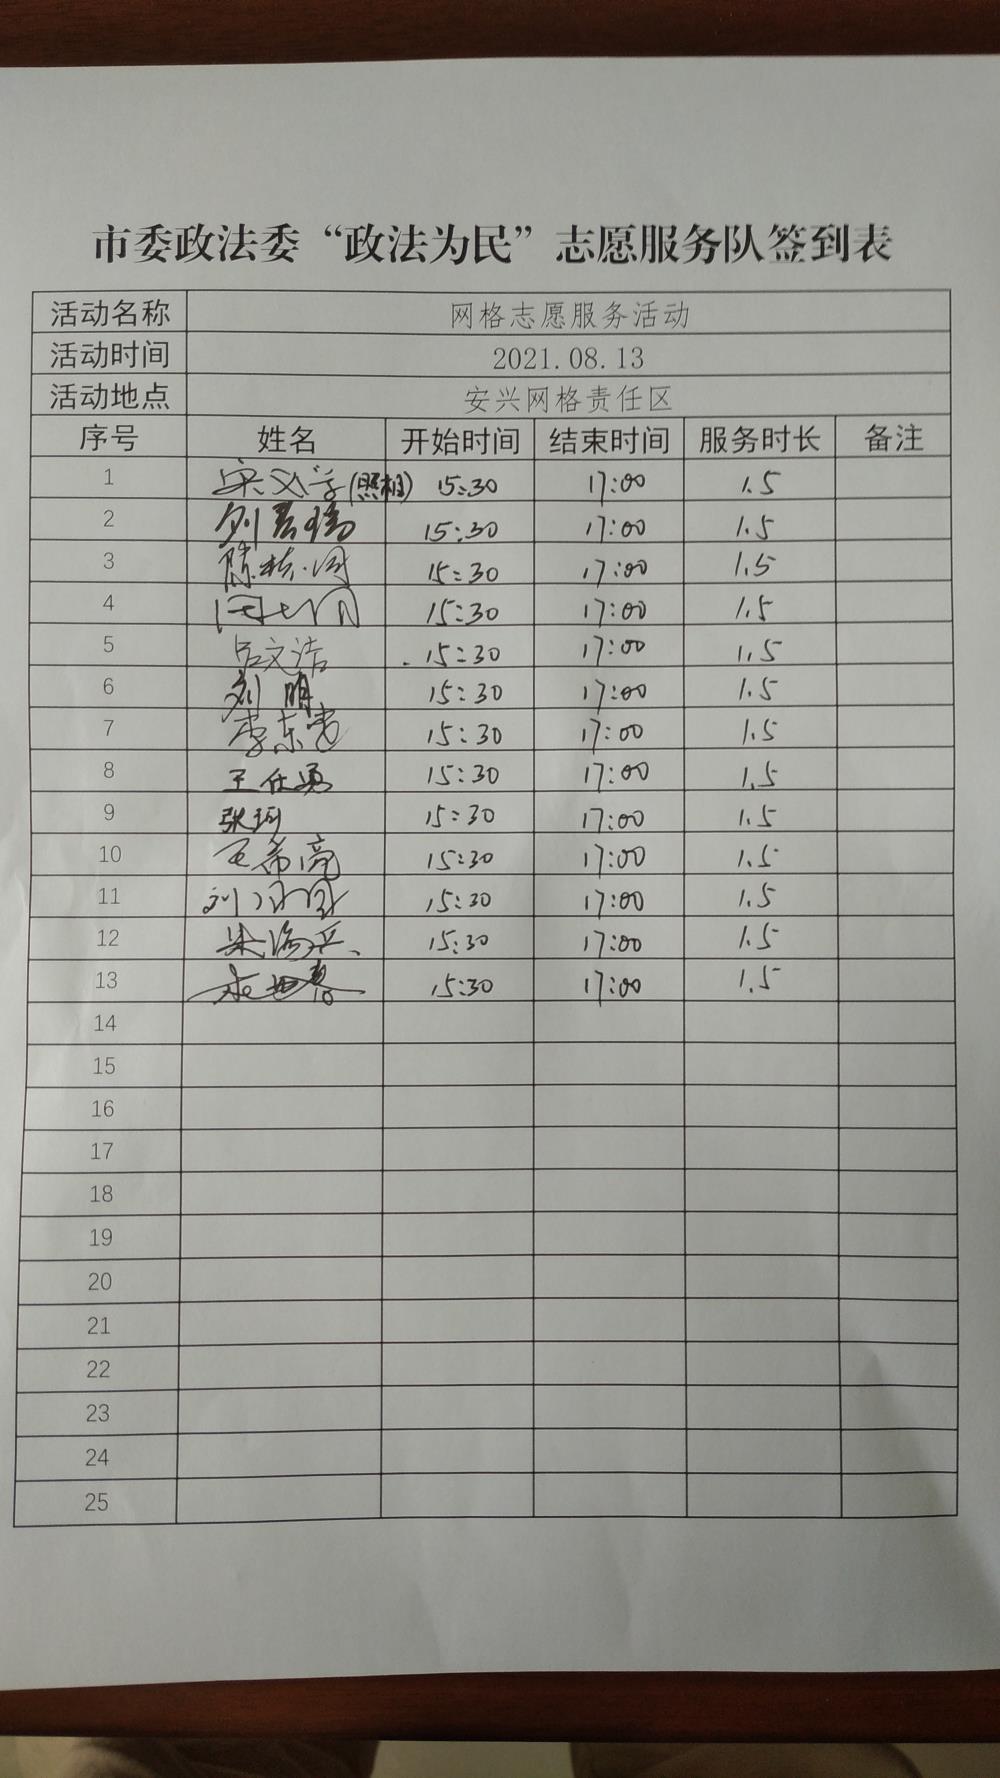 市委政法委“政法为民”志愿服务队签到表
活动名称 网格志愿服务活动
活动时间 2021.08.13
活动地点 安兴网格责任区
序号 姓名 开始时间 结束时间 服务时长 备注
1 宋文学(照相) 15:30 17:00 1.5
2 15:30 17:00 1.5
3 15:30 17:00 1.5
4 15:30 17:00 1.5
5 吕文洁 15:30 17:00 1.5
6 刘明 15:30 17:00 1.5
7 15:30 17:00 1.5
8 王任勇 15:30 17:00 1.5
9 张珂 15:30 17:00 1.5
10 王希亮 15:30 17:00 1.5
11 15:30 17:00 1.5
12 15:30 17:00 1.5
13 15:30 17:00 1.5
14
15
16
17
18
19
20
21
22
23
24
25